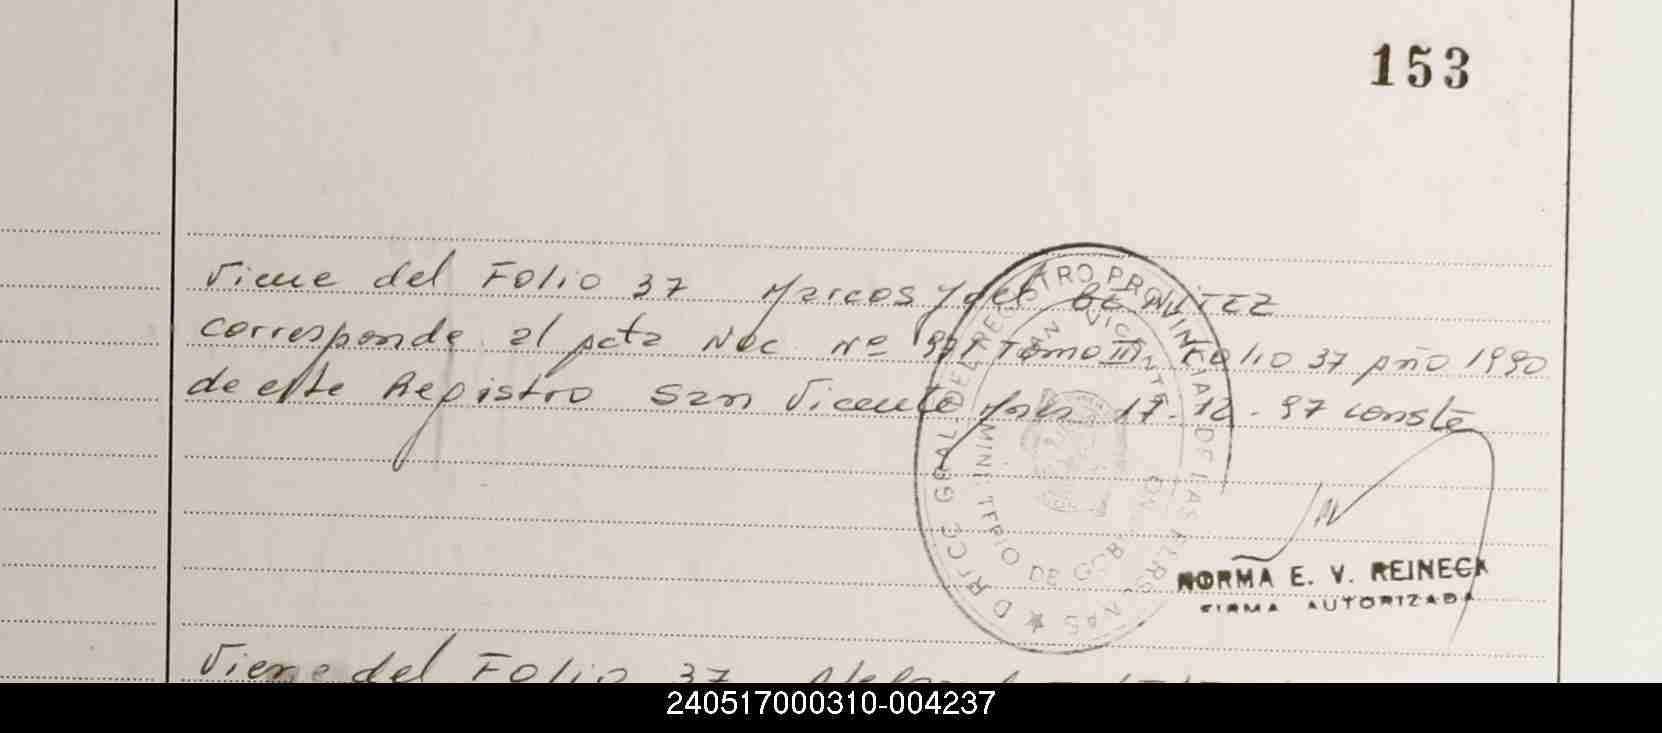 153
Viene del Folio 37 Marcos Ydel BENITEZ
corresponde al acta Nac Nº Tomo III Folio 37 año 1990
de este Registro San Vicente Mnes 17-12-97 conste
DR CC GRAL DEL REGISTRO PROVINCIAL DE LAS PERSONAS
SAN VICENTE
MINISTERIO DE GOBIERNO
NORMA E. V. REINECK
FIRMA AUTORIZADA
Viene del Folio 37
240517000310-004237